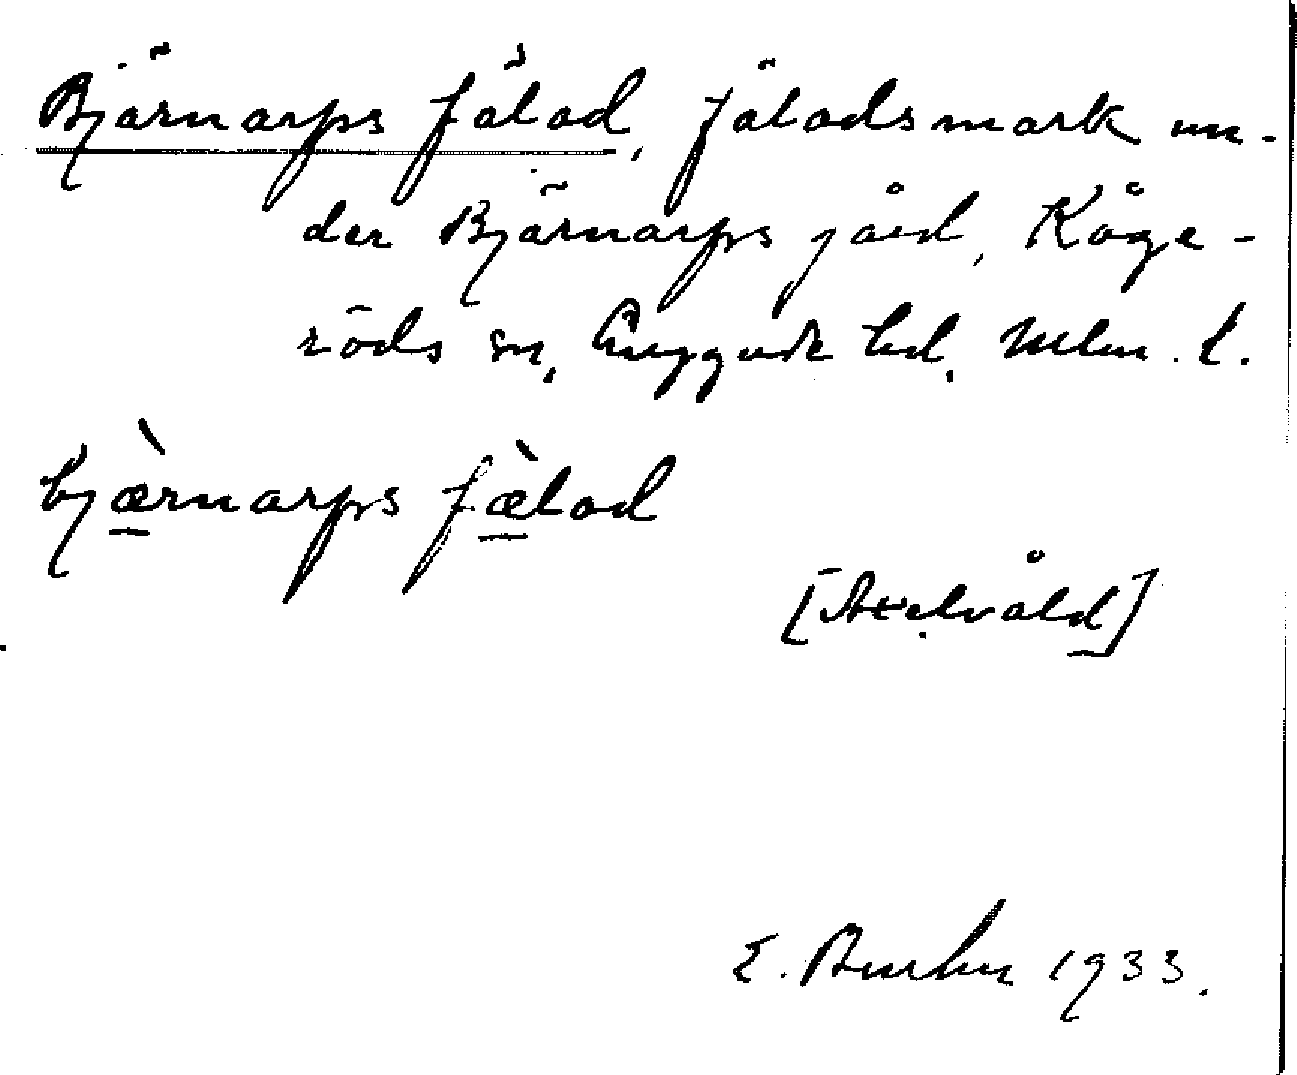 Bjärnarps fälad, fäladsmark un-
der Bjärnarps gård, Kåge-
röds sn, Luggude hd, Mlm. l.
bjæ̀rnarps fæ̀lad
[Axelvåld]
E. Burhn 1933.